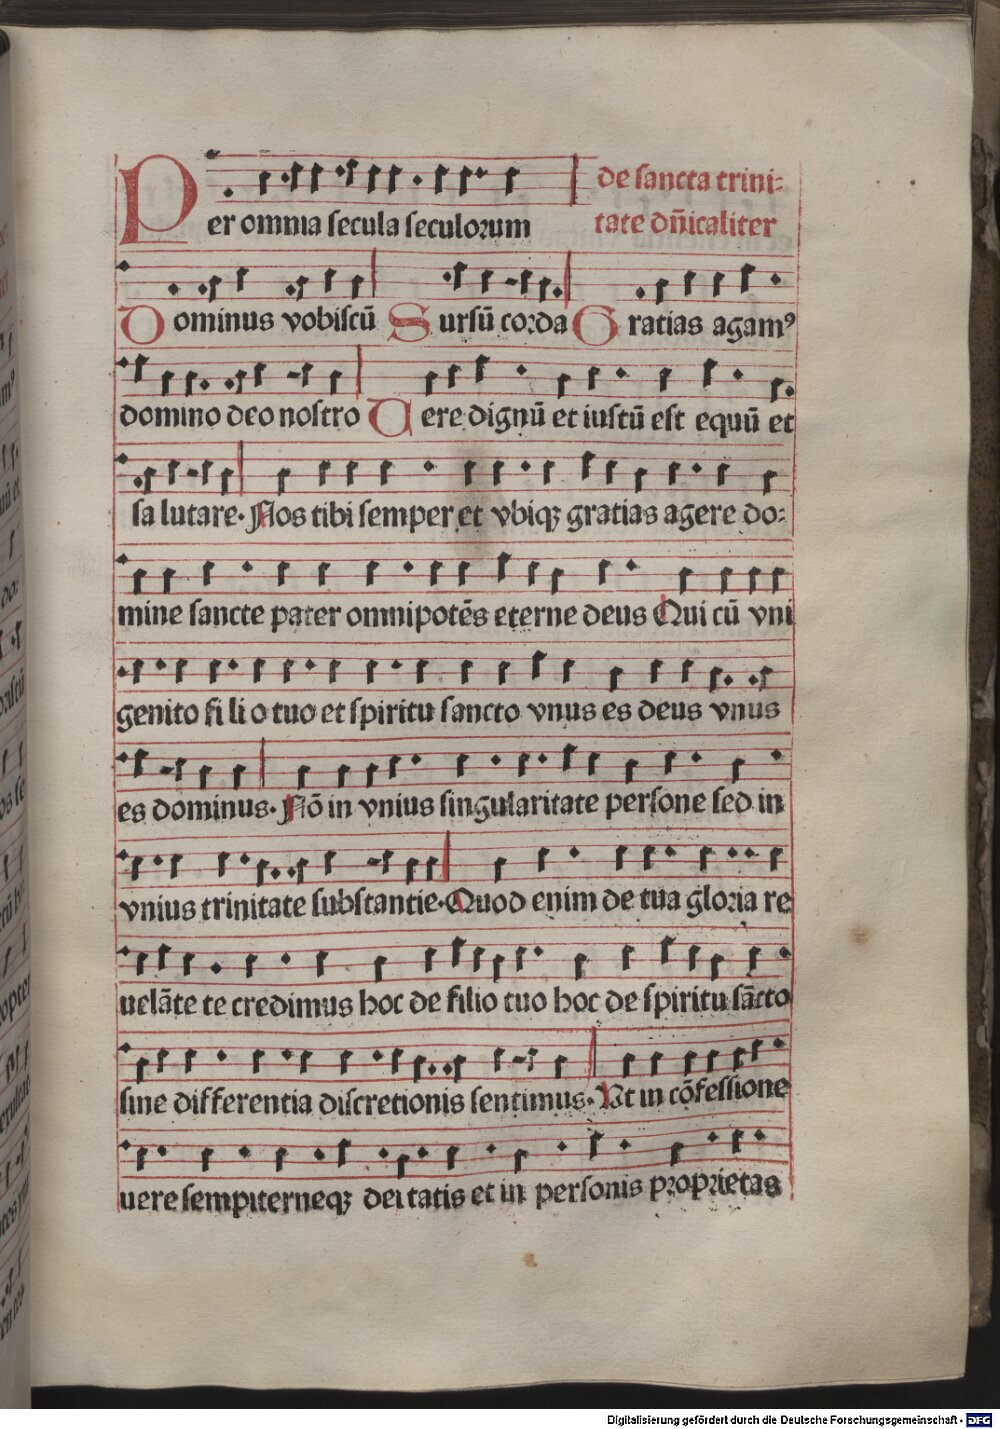 Per omnia ſecula ſeculoꝛum
de ſancta trini⸗
tate dn̄icaliter
Dominus vobiſcū Surſū coꝛda Gratias agamꝰ
domino deo noſtro Uere dignū et iuſtū eſt equū et
ſa lutare. Nos tibi ſemper et vbiqꝫ gratias agere do⸗
mine ſancte pater omnipotēs eterne deus Qui cū vni
genito fi li o tuo et ſpiritu ſancto vnus es deus vnus
es dominus. Nō in vnius ſingularitate perſone ſed in
vnius trinitate ſubſtantie. Quod enim de tua gloꝛia re
uelāte te credimus hoc de filio tuo hoc de ſpiritu ſācto
ſine differentia diſcretionis ſentimus. Ut in cōfeſſione
uere ſempiterneqꝫ dei tatis et in perſonis pꝛopꝛietas
Digitalisierung gefördert durch die Deutsche Forschungsgemeinschaft - DFG